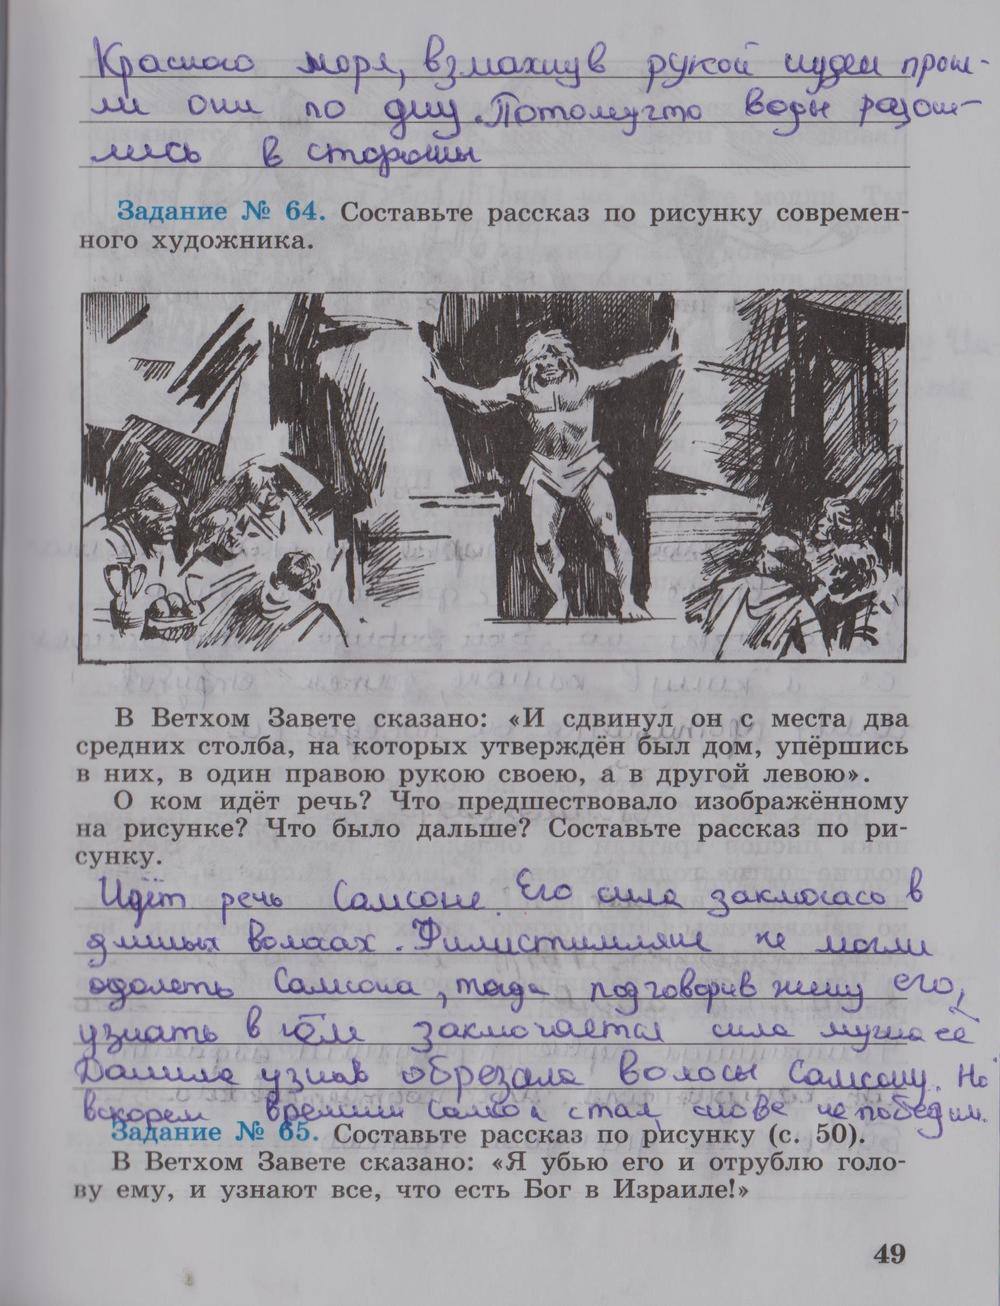 Красного моря, взмахнув рукой иудеи прош-
ли они по дну. Потомучто воды разош-
лись в стороны
Задание № 64. Составьте рассказ по рисунку современ-
ного художника.
В Ветхом Завете сказано: «И сдвинул он с места два
средних столба, на которых утверждён был дом, упёршись
в них, в один правою рукою своею, а в другой левою».
О ком идёт речь? Что предшествовало изображённому
на рисунке? Что было дальше? Составьте рассказ по ри-
сунку.
Идёт речь Самсоне. Его сила заключась в
длиных волоах. Филистимляне не могли
одолеть Самсона, тогда подговорив жену его,
узнать в чём заключается сила мужа её
Далила узнав обрезала волосы Самсону. Но
вскорем времини Самсон стал снове непобедим.
Задание № 65. Составьте рассказ по рисунку (с. 50).
В Ветхом Завете сказано: «Я убью его и отрублю голо-
ву ему, и узнают все, что есть Бог в Израиле!»
49